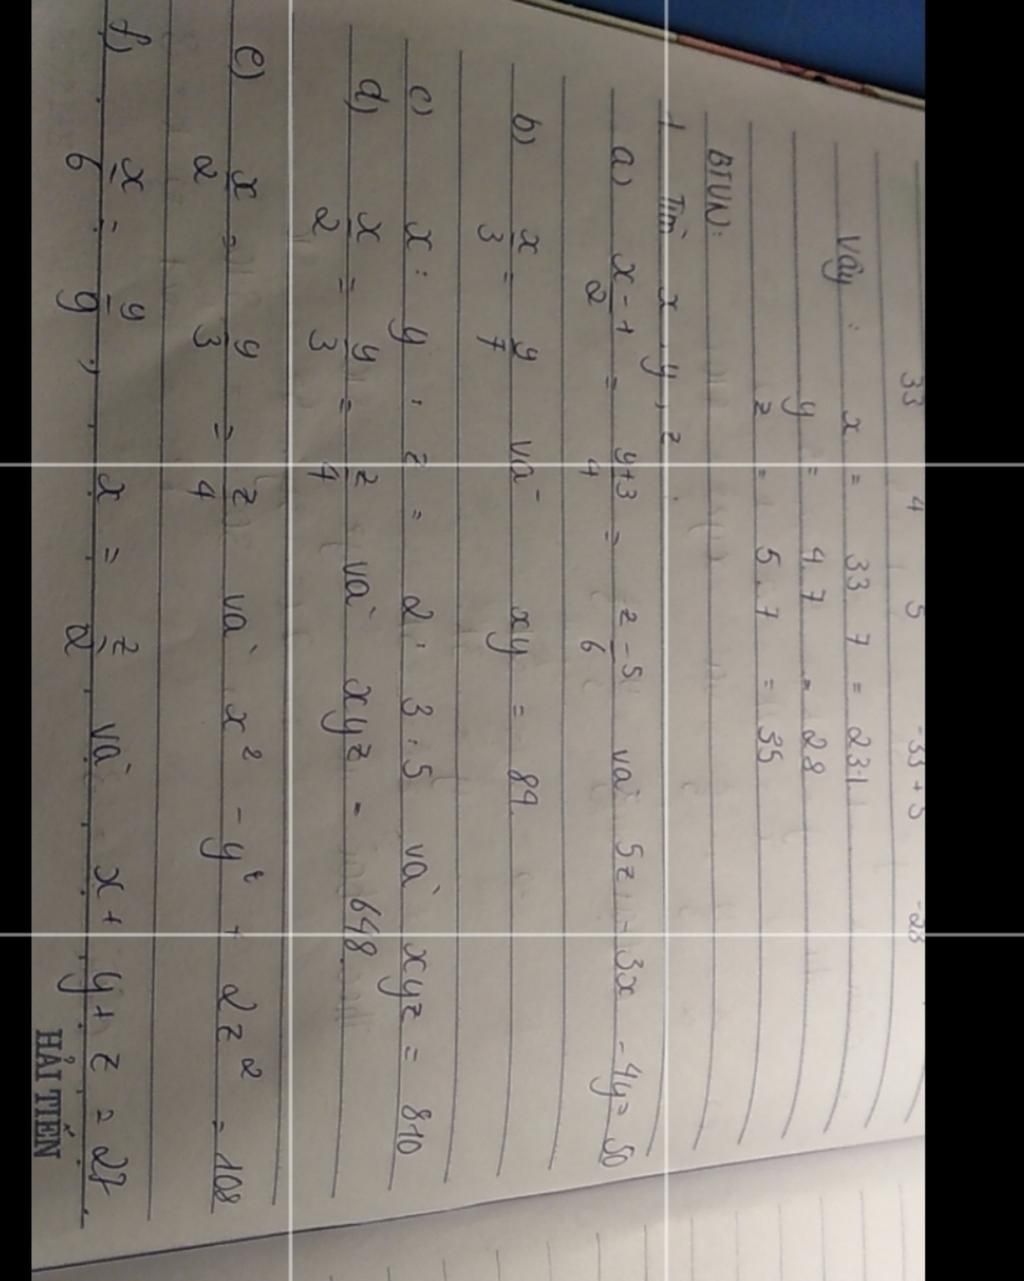 33 4 5 -33+5 -28
Vậy: x = 33.7 = 231
y = 4.7 = 28
z = 5.7 = 35
BTVN:
1 Tìm x, y, z
a) x-1/2 = y+3/4 = z-5/6 và 5z - 3x - 4y = 50
b) x/3 = y/7 và xy = 84.
c) x : y : z = 2 : 3 : 5 và xyz = 810
d) x/2 = y/3 = z/4 và xyz = 648.
e) x/2 = y/3 = z/4 và x² - y² + 2z² = 108
f) x/6 = y/9, x = z/2 và x + y + z = 27.
HẢI TIẾN